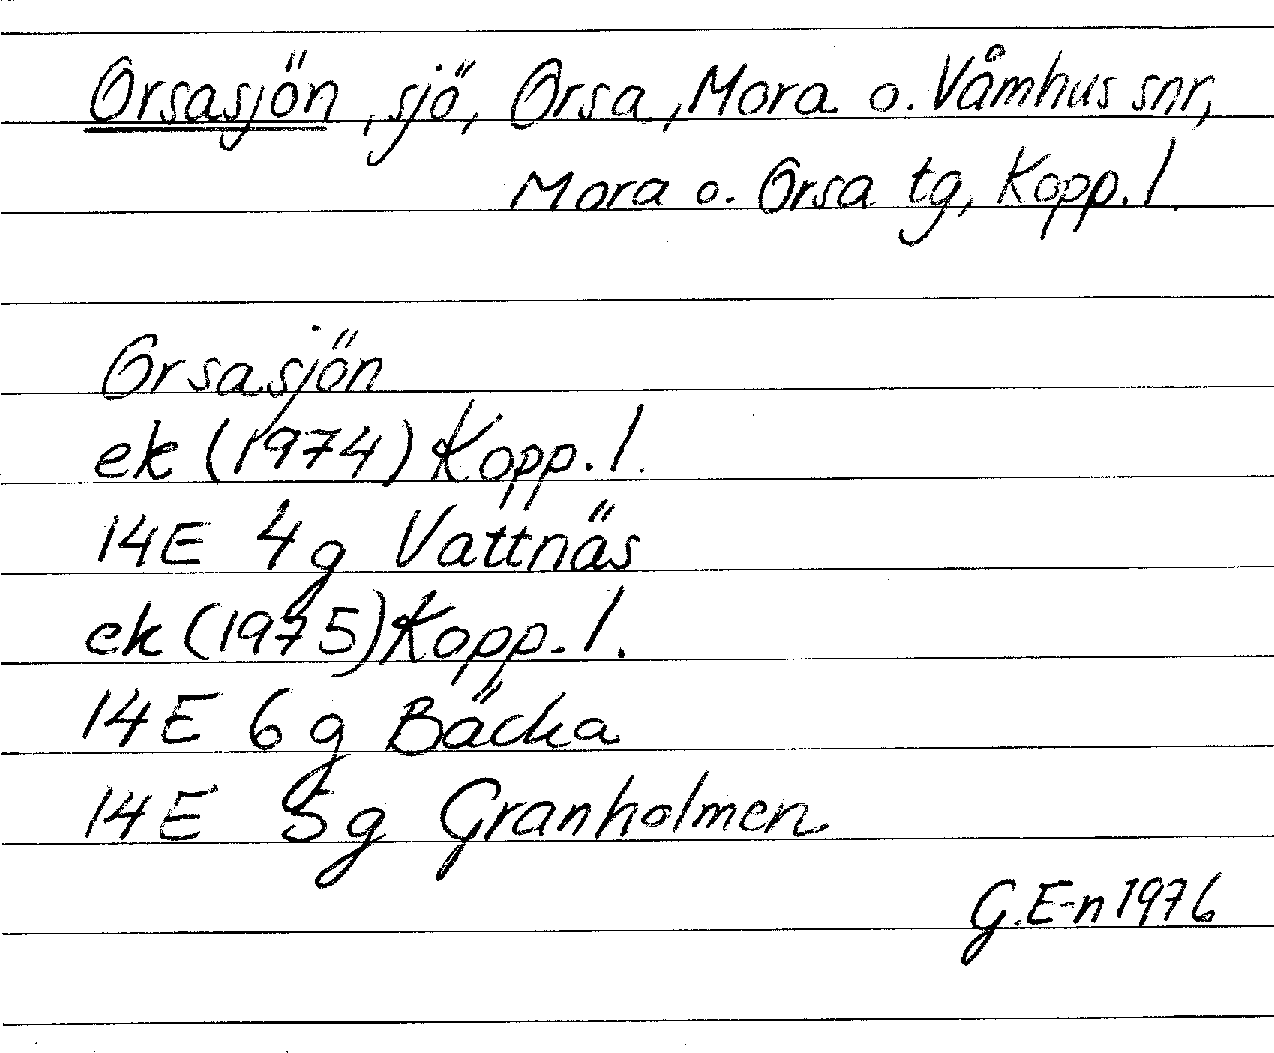 Orsasjön, sjö, Orsa, Mora o. Våmhus snr,
Mora o. Orsa tg, Kopp. l.
Orsasjön
ek (1974) Kopp. l.
14E 4g Vattnäs
ek (1975) Kopp. l.
14E 6g Bäcka
14E 5g Granholmen
G.E-n 1976